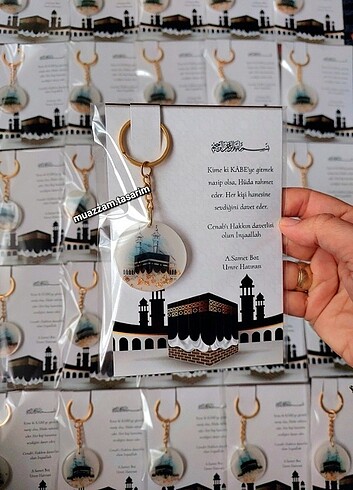 بسم الله الرحمن الرحيم
Kime ki KÂBE'ye gitmek
nasip olsa, Hüda rahmet
eder. Her kişi hanesine
sevdiğini davet eder.
Cenab'ı Hakkın davetlisi
olun İnşaallah
A.Samet Boz
Umre Hatırası
muazzam.tasarim